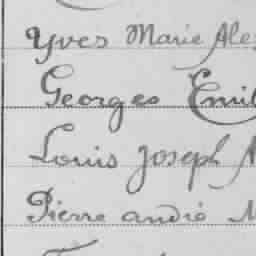 Yves Marie Ale
Georges Emil
Louis Joseph
Pierre andré